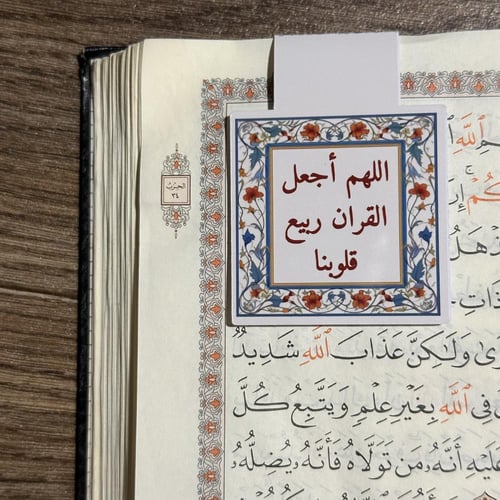 الحزب
٣٤
اللهم أجعل
القران ربيع
قلوبنا
ٱللَّهِ
وَلَٰكِنَّ عَذَابَ ٱللَّهِ شَدِيدٌ
فِي ٱللَّهِ بِغَيْرِ عِلْمٍ وَيَتَّبِعُ كُلَّ
عَلَيْهِ أَنَّهُۥ مَن تَوَلَّاهُ فَأَنَّهُۥ يُضِلُّهُۥ